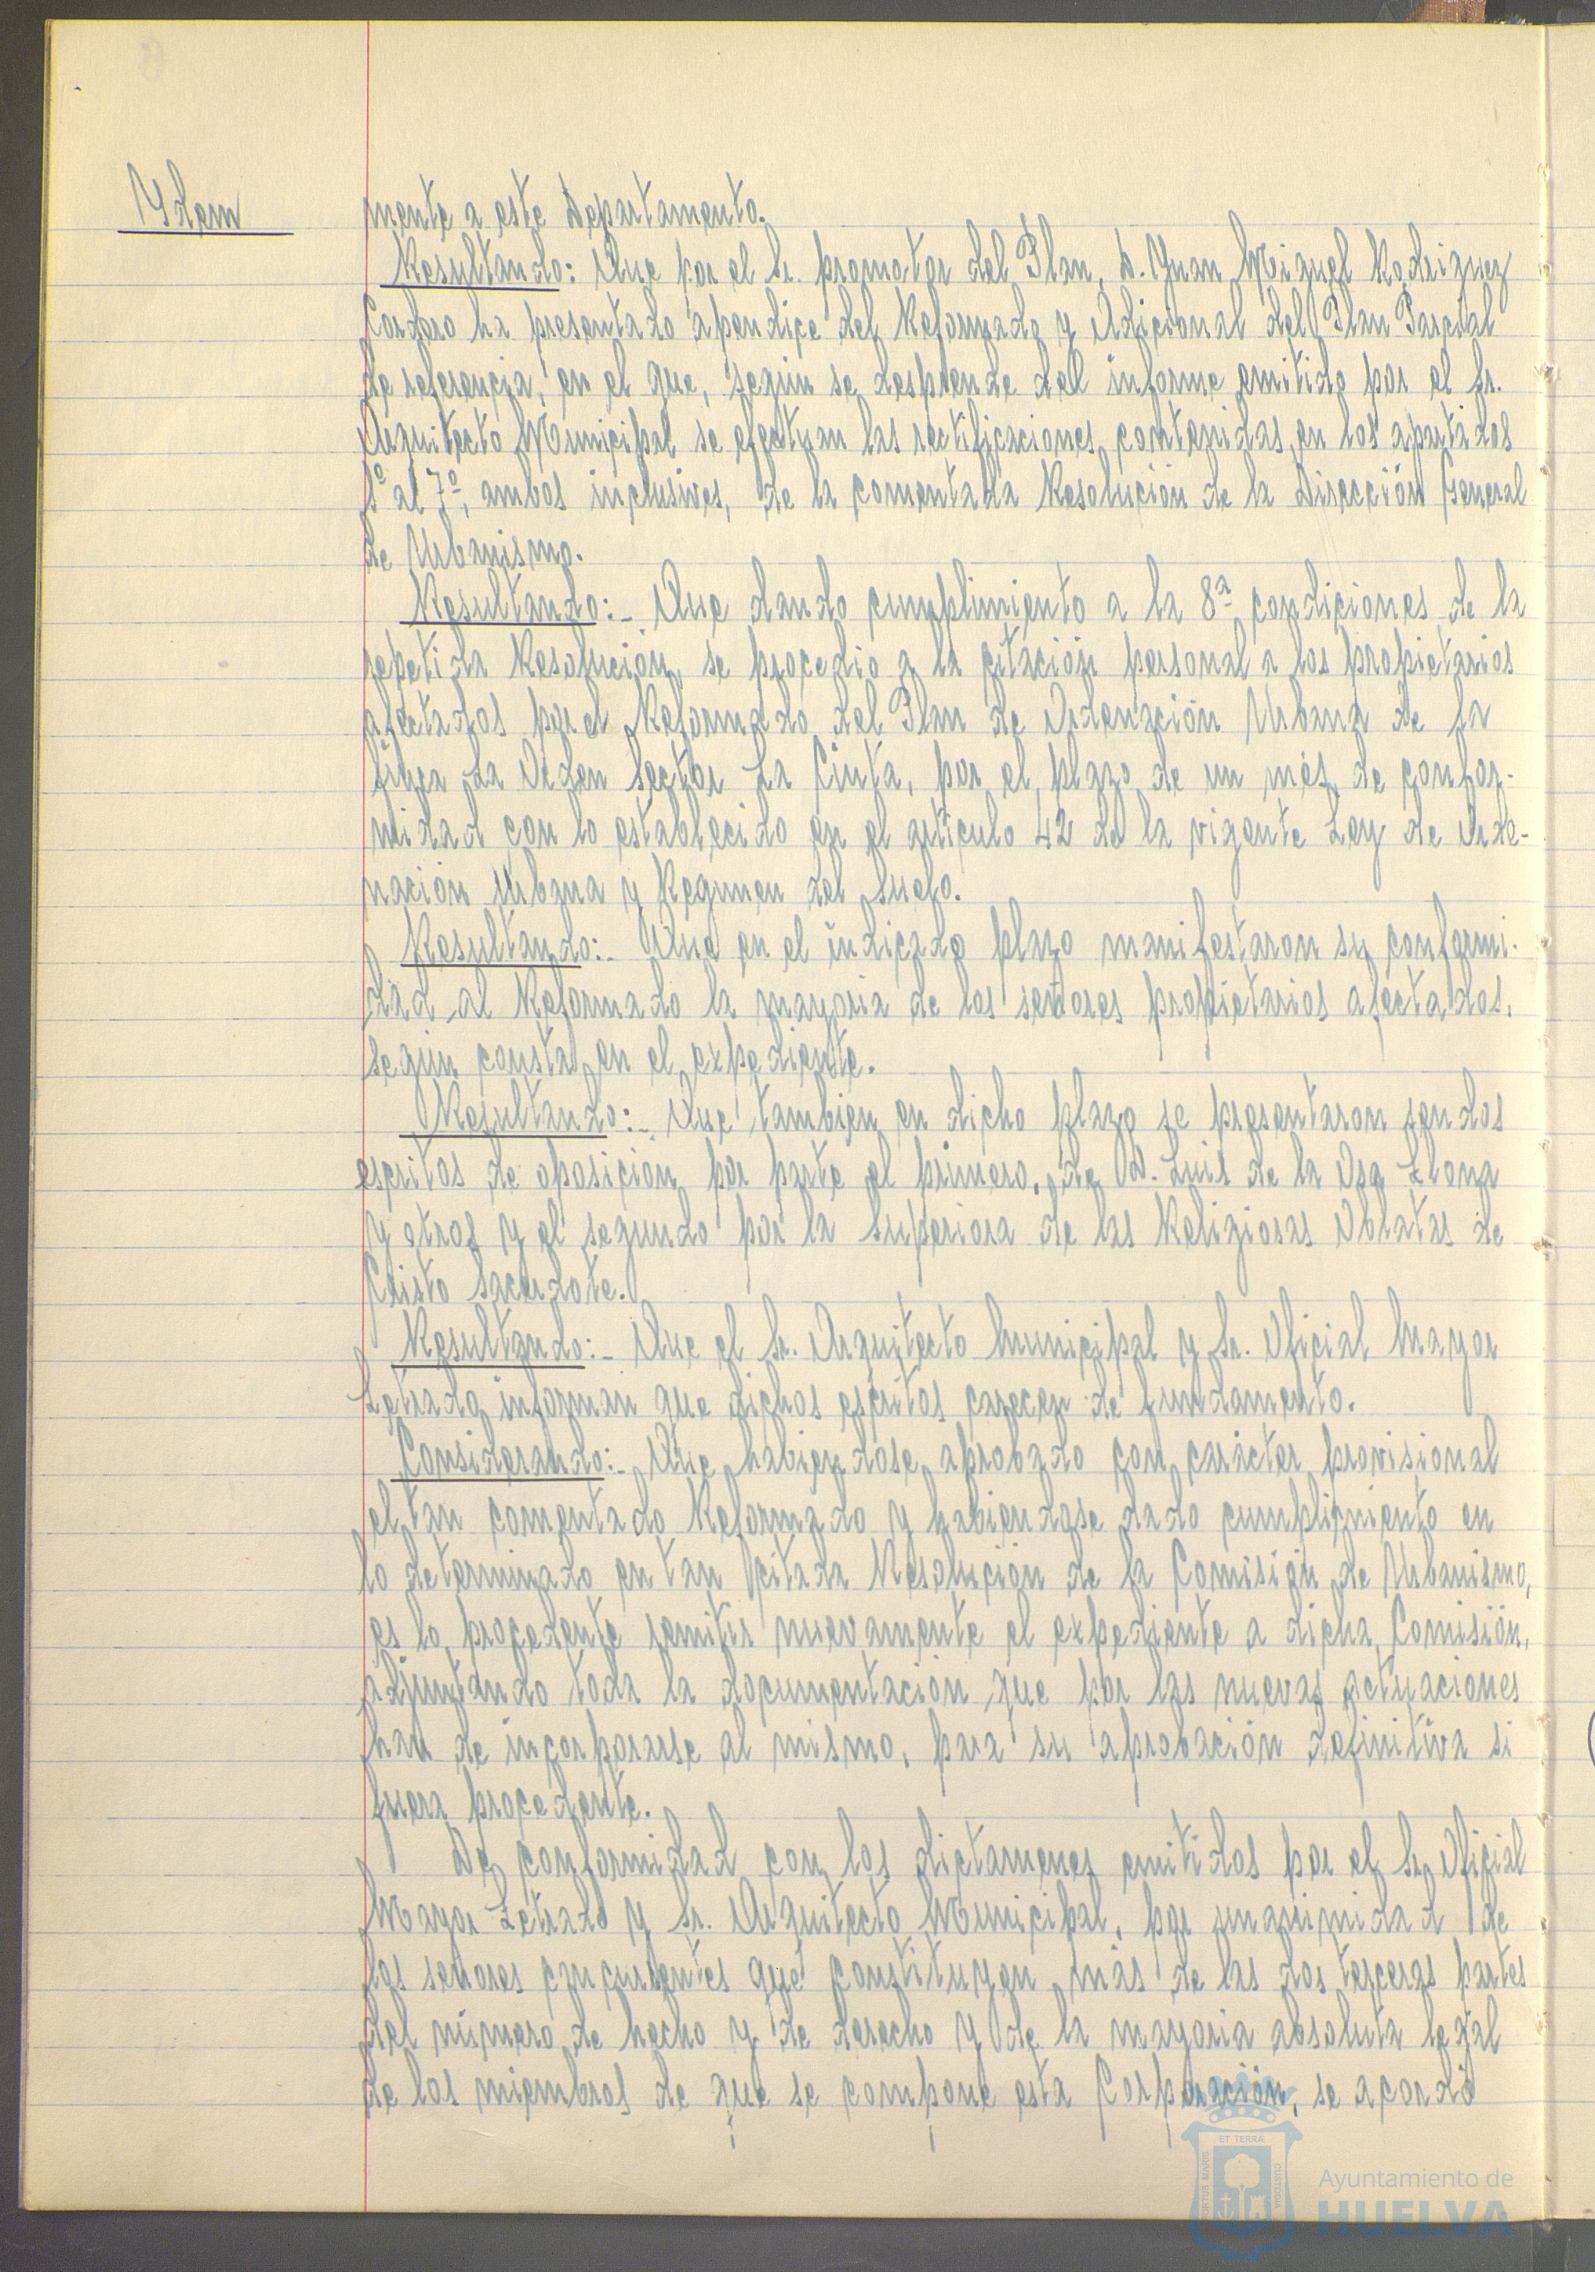 Ydem
mente a este Departamento.
Resultando: Que por el Sr. promotor del Plan, D. Juan Miguel Rodriguez
Cordero ha presentado apendice del Reformado y Adicional del Plan Parcial
de referencia, en el que, según se desprende del informe emitido por el Sr.
Arquitecto Municipal se efectuan las rectificaciones contenidas en los apartados
1º al 7º, ambos inclusives, de la comentada Resolución de la Dirección General
de Urbanismo.
Resultando:- Que dando cumplimiento a la 8ª condiciones de la
repetida Resolución, se procedio a la citación personal a los propietarios
afectados por el Reformado del Plan de Ordenación Urbana de la
finca La Orden Sector La Cinta, por el plazo de un més, de confor-
midad con lo establecido en el articulo 42 de la vigente Ley de Orde-
nación Urbana y Regimen del Suelo.
Resultando:- Que en el indicado plazo manifestaron su conformi-
dad al Reformado la mayoria de los señores propietarios afectados,
según consta en el expediente.
Resultando:- Que tambien en dicho plazo se presentaron sendos
escritos de oposicion por parte el primero, de D. Luis de la Osa
y otros y el segundo por la Superiora de las Religiosas Oblatas de
Cristo Sacerdote.
Resultando:- Que el Sr. Arquitecto Municipal y Sr. Oficial Mayor
Letrado informan que dichos escritos carecen de fundamento.
Considerando:- Que habiendose aprobado con carácter provisional
el tan comentado Reformado y habiendose dado cumplimiento en
lo determinado en tan citada Resolución de la Comisión de Urbanismo,
es lo procedente remitir nuevamente el expediente a dicha Comisión,
adjuntando toda la documentación que por las nuevas actuaciones
han de incorporarse al mismo, para su aprobación definitiva si
fuera procedente.
De conformidad con los dictamenes emitidos por el Sr. Oficial
Mayor Letrado y Sr. Arquitecto Municipal, por unanimidad de
los señores concurrentes que constituyen más de las dos terceras partes
del número de hecho y de derecho y de la mayoria absoluta legal
de los miembros de que se compone esta Corporación, se acordó
PORTUS MARIS ET TERRÆ CUSTODIA
Ayuntamiento de
HUELVA